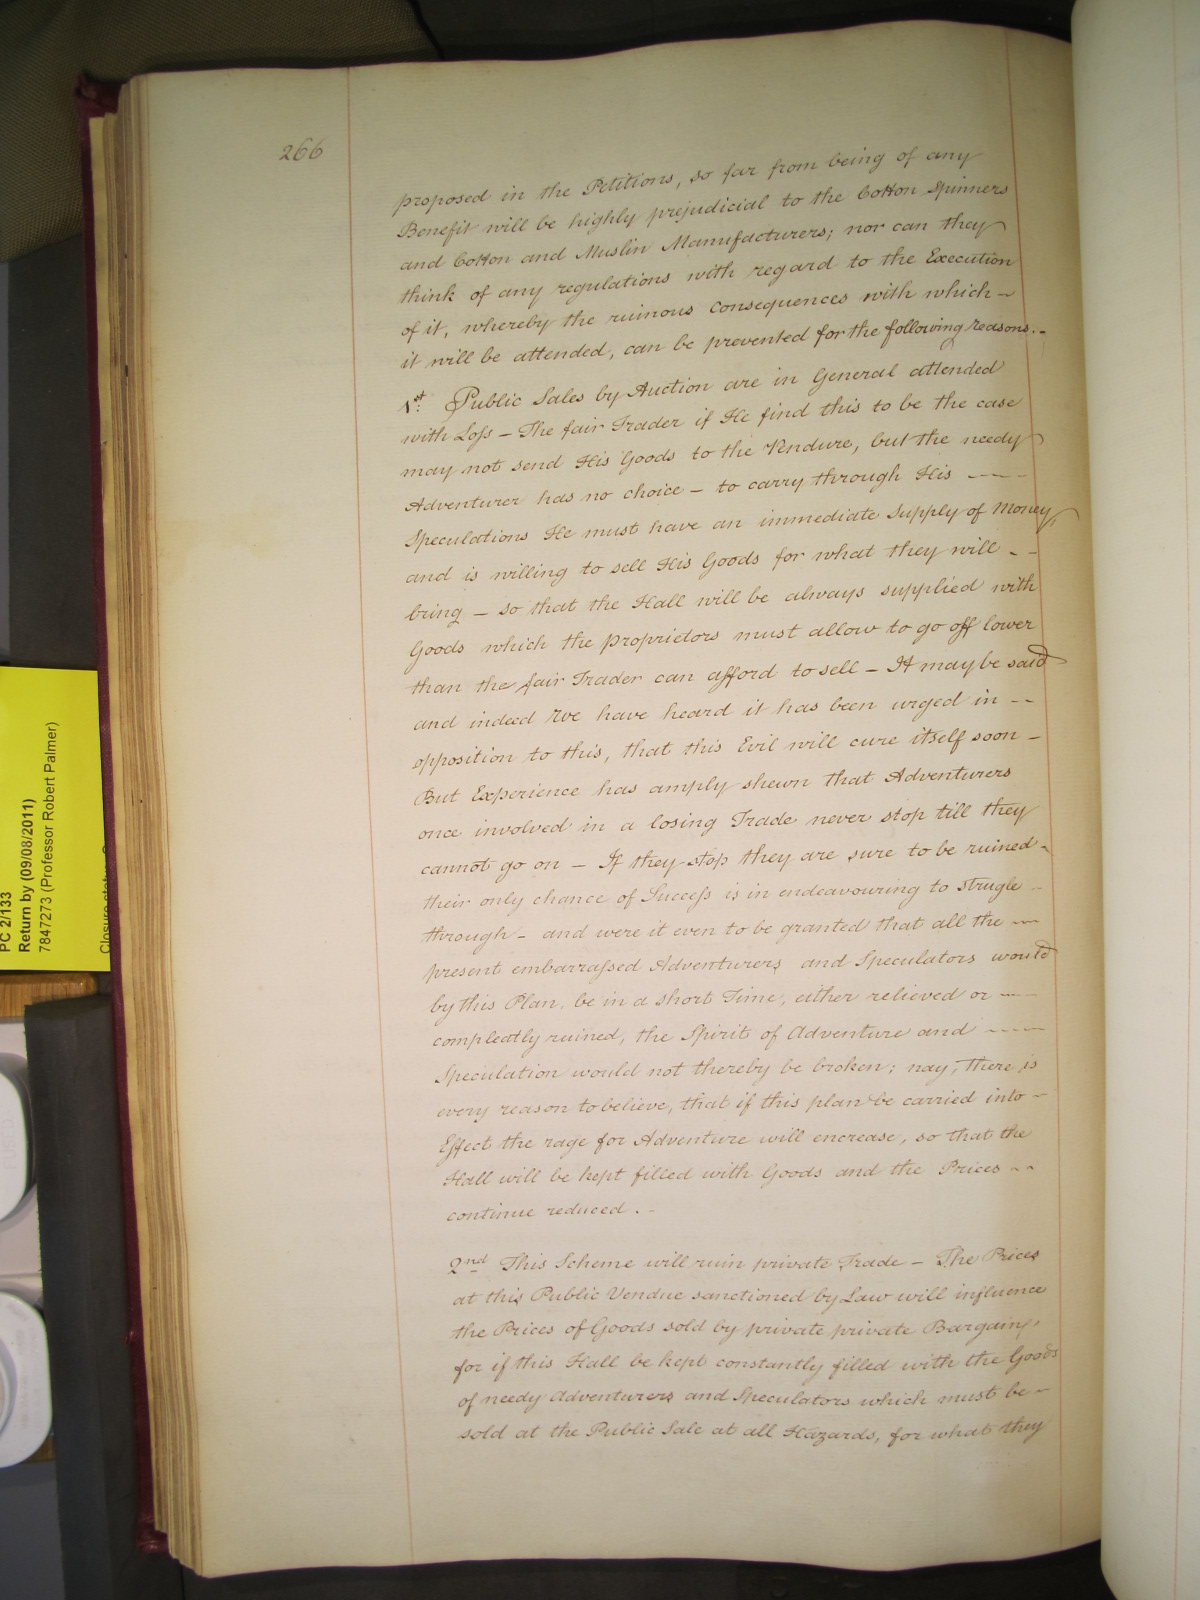 266
proposed in the Petitions, so far from being of any
Benefit will be highly prejudicial to the Cotton Spinners
and Cotton and Muslin Manufacturers; nor can they
think of any regulations with regard to the Execution
of it, whereby the ruinous Consequences with which —
it will be attended, can be prevented for the following reasons. -
1st Public Sales by Auction are in General attended
with Loss — The fair Trader if He find this to be the case
may not send His Goods to the Vendure, but the needy
Adventurer has no choice — to carry through His — —
Speculations He must have an immediate Supply of Money,
and is willing to sell His Goods for what they will - -
bring — so that the Hall will be always supplied with
Goods which the Proprietors must allow to go off lower
than the fair Trader can afford to sell — It may be said
and indeed We have heard it has been urged in - -
opposition to this, that this Evil will cure itself soon —
But Experience has amply shewn that Adventurers
once involved in a losing Trade never stop till they
cannot go on — If they stop they are sure to be ruined -
their only chance of Success is in endeavouring to strugle -
through - and were it even to be granted that all the —
present embarrassed Adventurers and Speculators would
by this Plan, be in a short Time, either relieved or —
compleatly ruined, the Spirit of Adventure and — —
Speculation would not thereby be broken; nay, there is
every reason to believe, that if this plan be carried into -
Effect the rage for Adventure will encrease, so that the
Hall will be kept filled with Goods and the Prices - -
continue reduced. -
2nd This Scheme will ruin private Trade — The Prices
at this Public Vendue sanctioned by Law will influence
the Prices of Goods sold by private private Bargains,
for if this Hall be kept constantly filled with the Goods
of needy Adventurers and Speculators which must be -
sold at the Public Sale at all Hazards, for what they
PC 2/133
Return by (09/08/2011)
7847273 (Professor Robert Palmer)